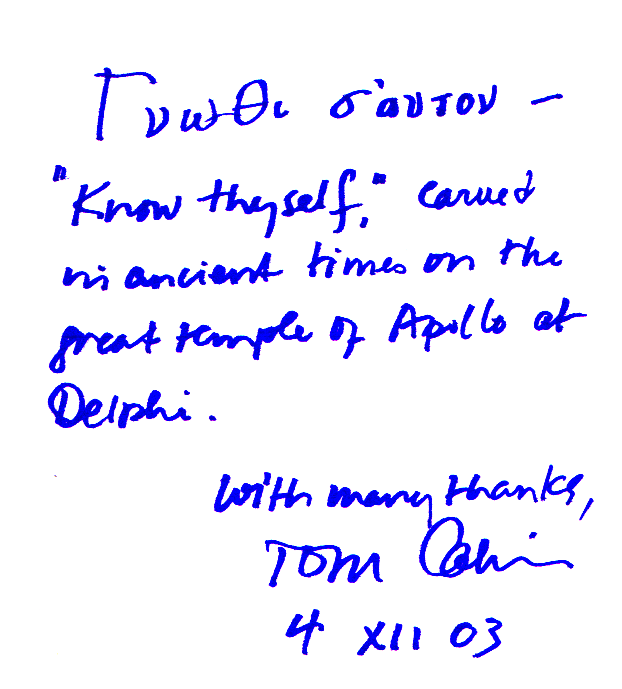 Γνωθι σ'αυτον –
"Know thyself," carved
in ancient times on the
great temple of Apollo at
Delphi.
With many thanks,
Tom
4 XII 03